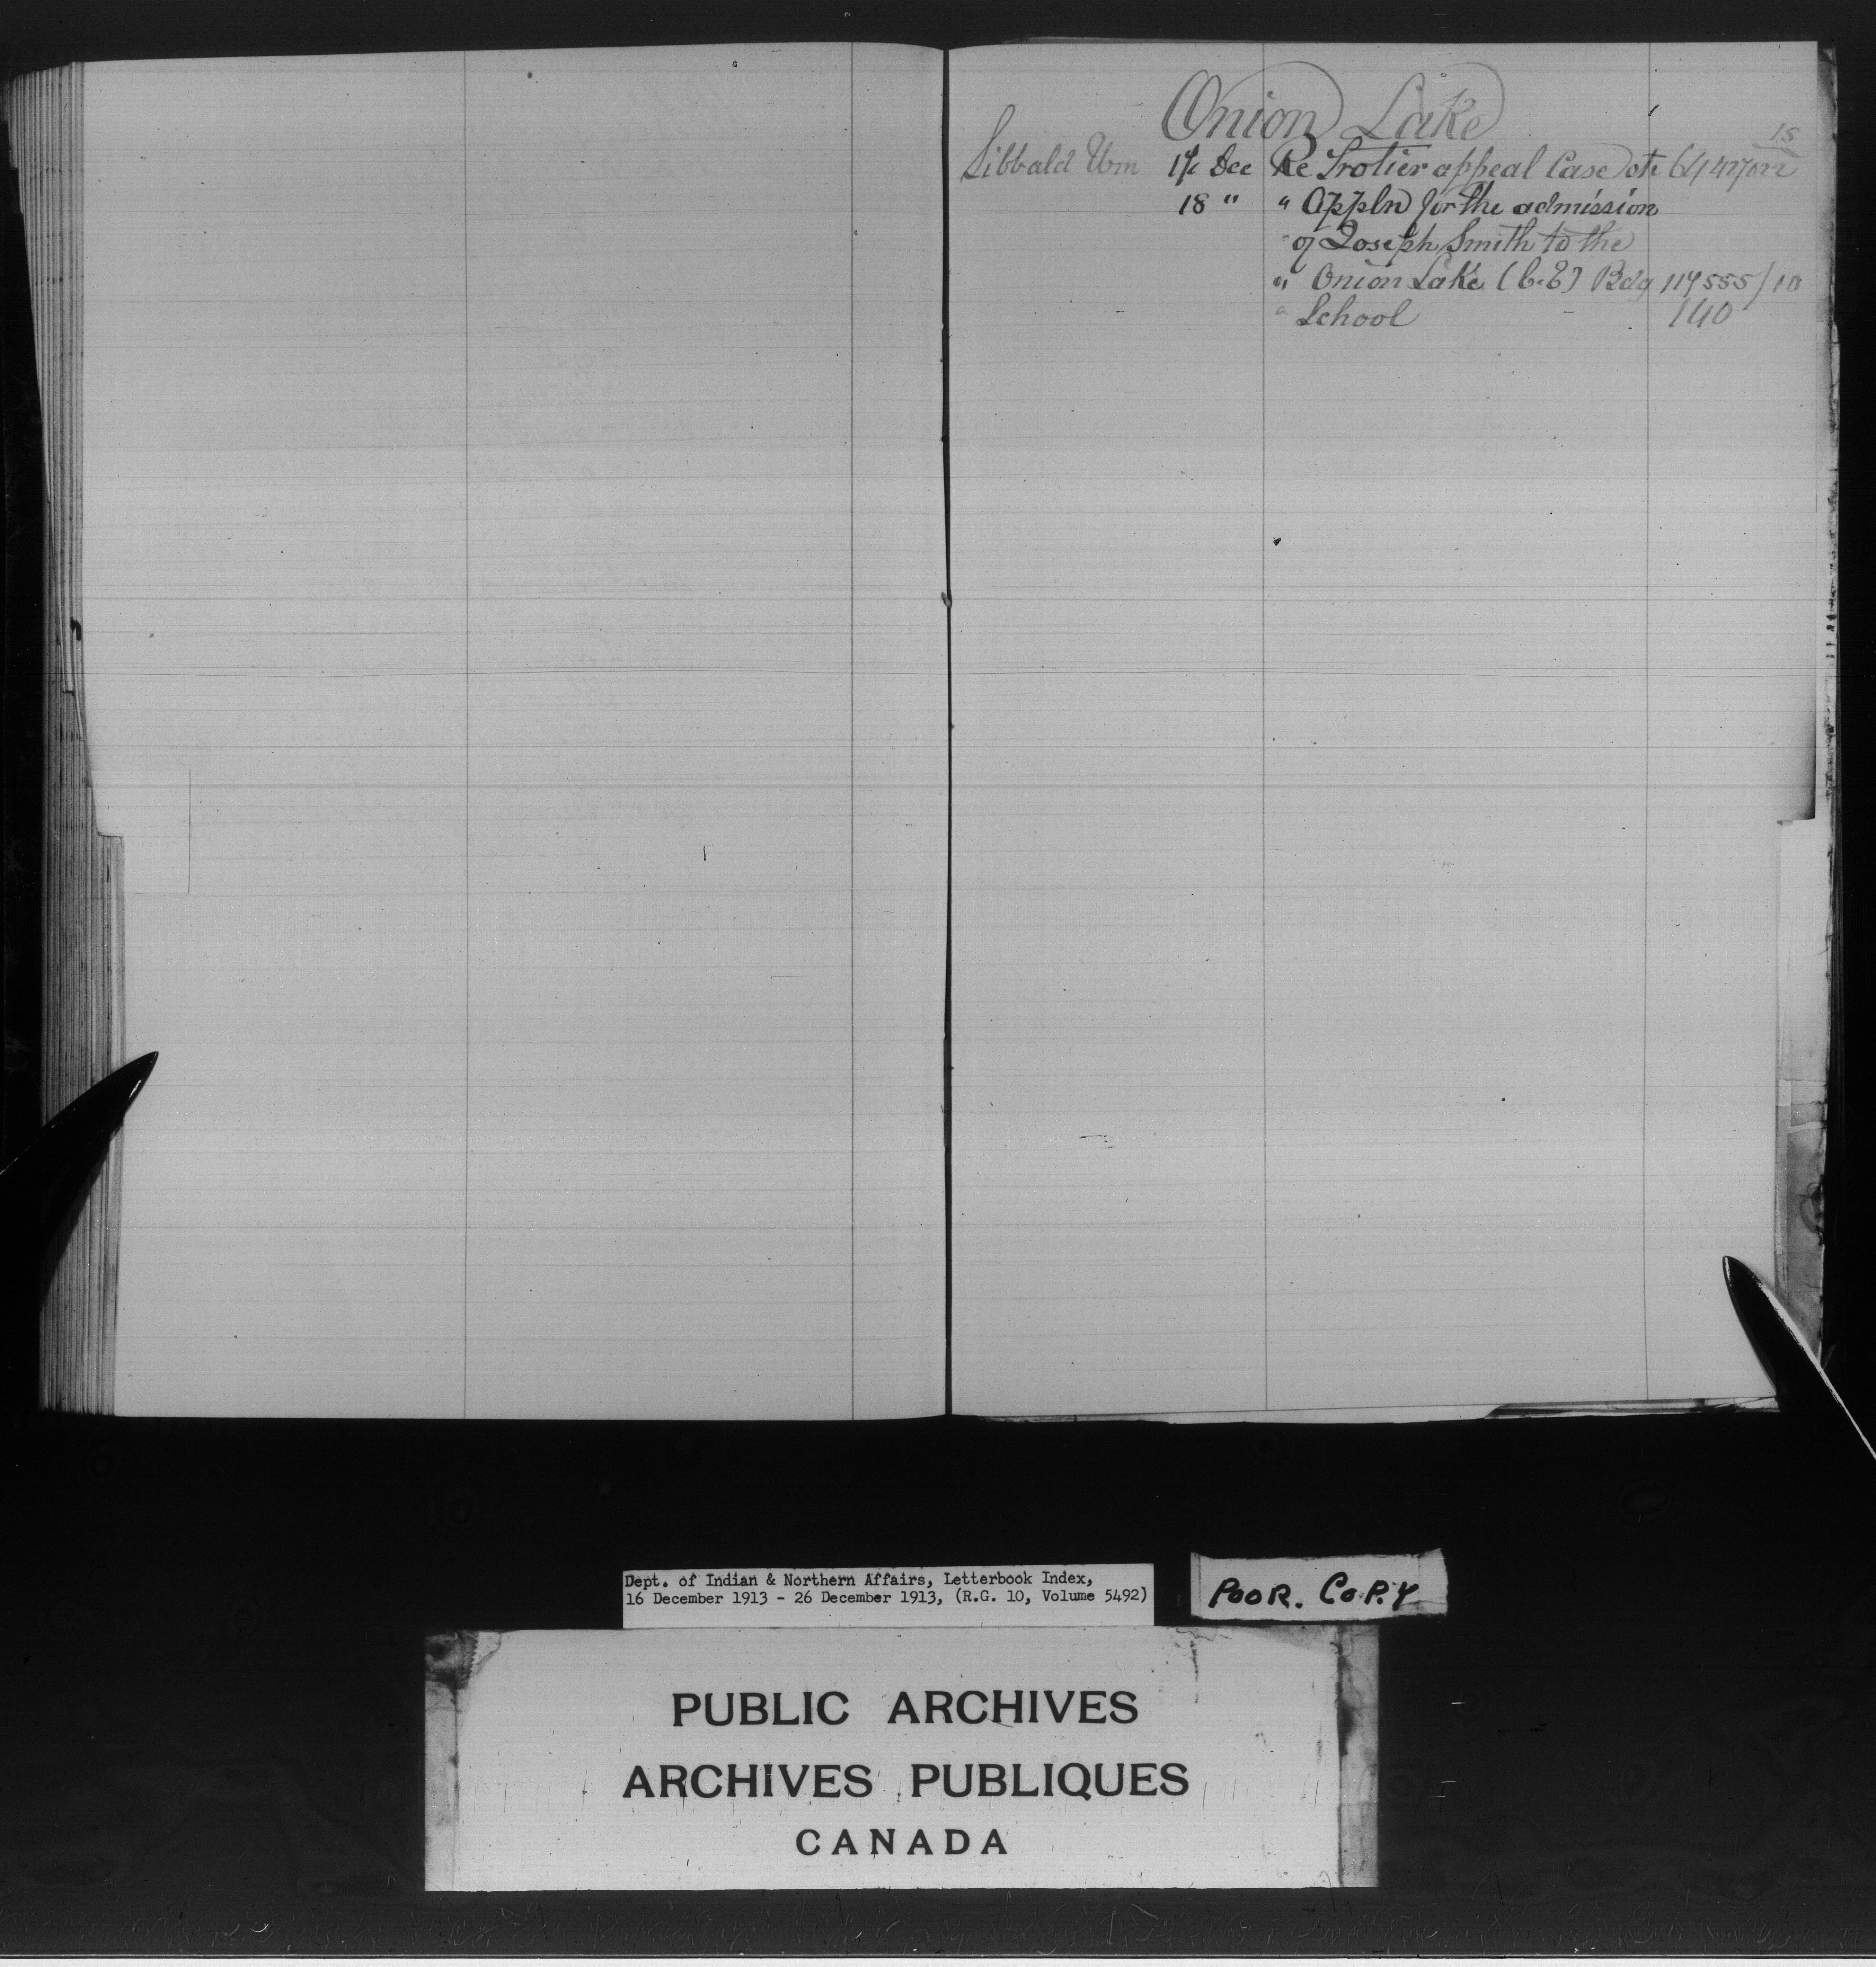 Onion Lake
15
Sibbald Wm 17 Dec Re Trotier appeal Case etc 64 427022
18 " " Appln for the admission
" of Joseph Smith to the
" Onion Lake (C.E) Bdg 117 555/10
" School - 140
Dept. of Indian & Northern Affairs, Letterbook Index,
16 December 1913 - 26 December 1913, (R.G. 10, Volume 5492)
POOR. COPY
PUBLIC ARCHIVES
ARCHIVES PUBLIQUES
CANADA